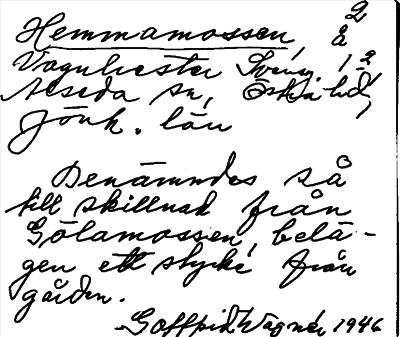 Hemmamossen, å 2
Vagnhester Sveng. 1, 2,
Neseda sn, Östra hd,
Jönk. län
Benämndes så
till skillnad från
Gölamossen, belä-
gen ett stycke från
gården.
Gottfrid Wagnér 1946